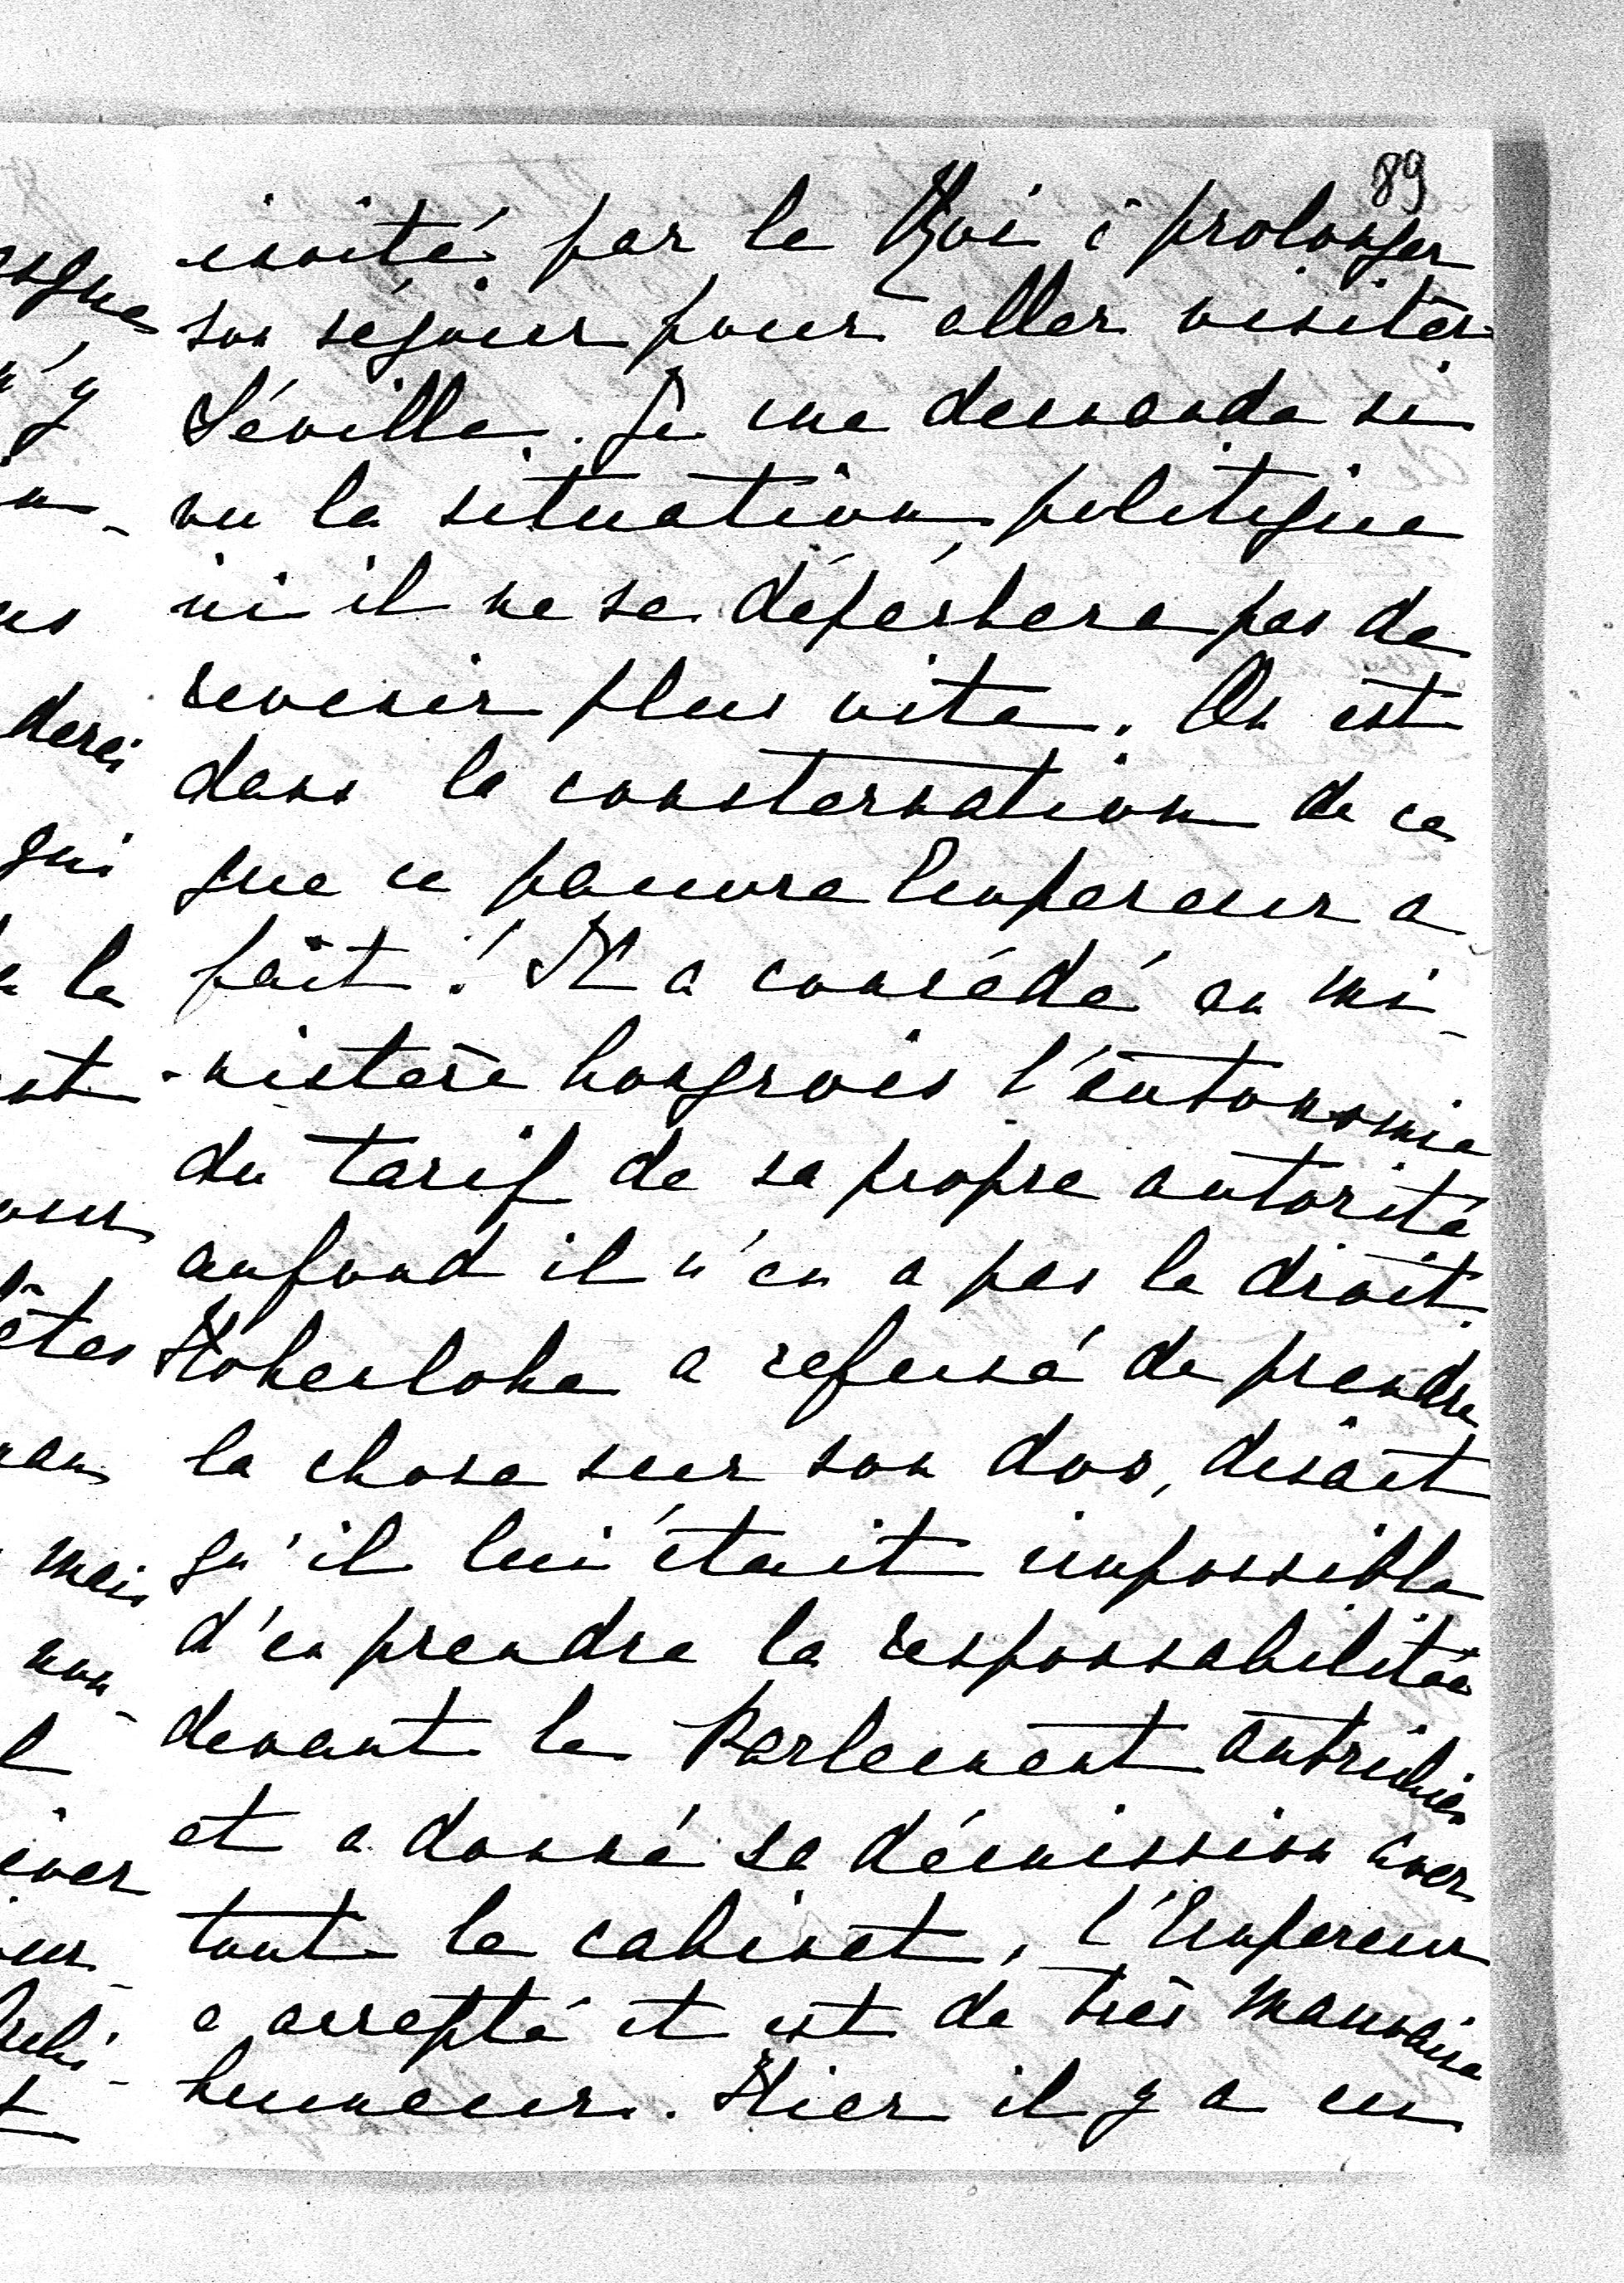 89
invité par le Roi à prolonger
son séjour pour aller visiter
Séville. Je me demande si
vu la situation politique
ici il ne se dépéchera pas de
revenir plus vite. On est
dans la consternation de ce
que ce pauvre Empereur a
fait! Il a concédé au mi-
-nistère hongrois l'autonomie
du tarif de sa propre autorité
aufond il n'en a pas le droit.
Hohenlohe a refusé de prendre
la chose sur son dos, disant
qu'il lui était impossible
d'en prendre la responsabilitée
devant le Parlement autrichien
et a donné sa démission avec
tout le cabinet, l'Empereur
a accepté et est de très mauvaise
humeur. Hier il y a eu